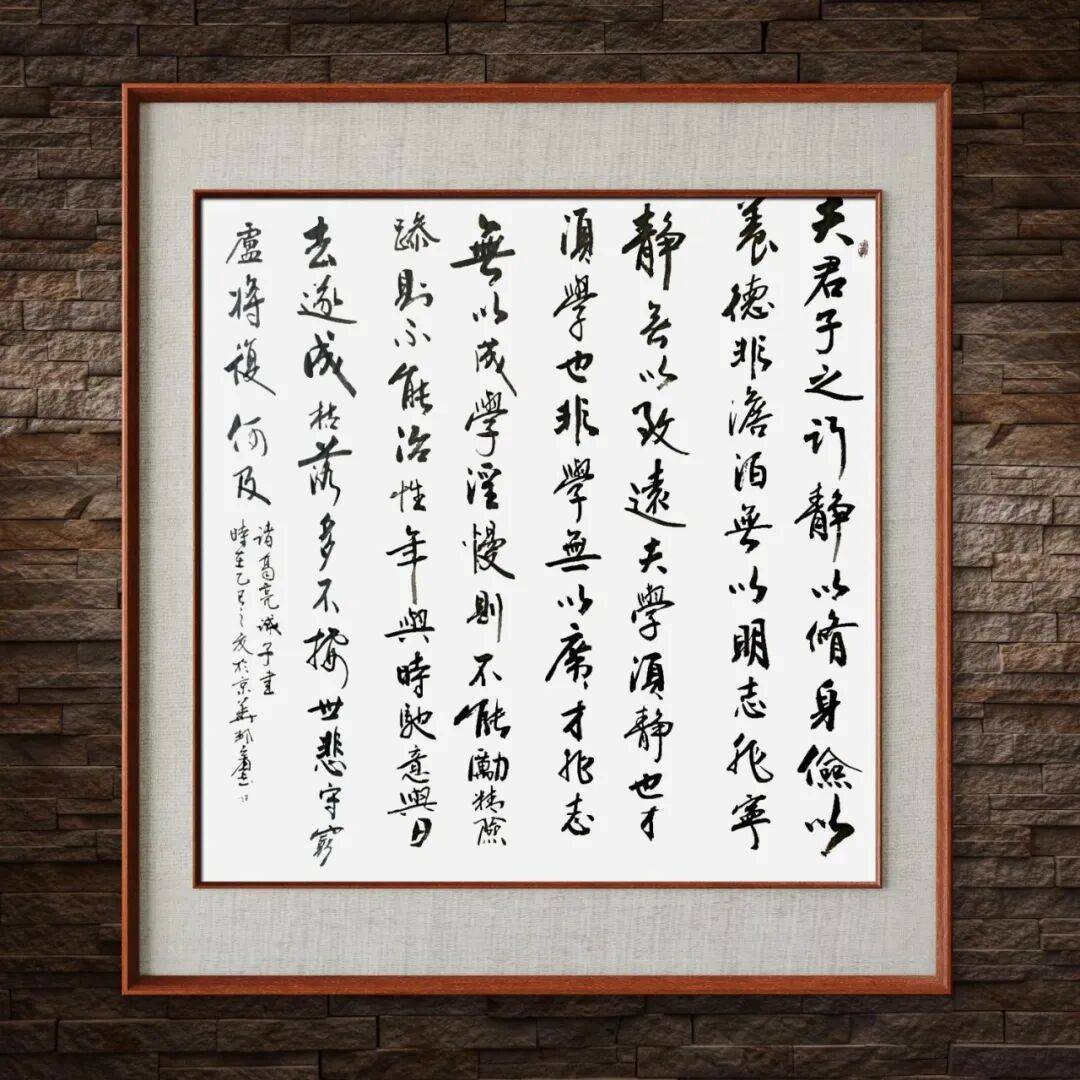 夫君子之行靜以脩身儉以
養德非澹泊無以明志非寧
靜无以致遠夫學須靜也才
須學也非學無以廣才非志
無以成學淫慢則不能勵精險
躁則不能治性年與時馳意與日
去遂成枯落多不接世悲守窮
盧將復何及
諸葛亮誡子書
時在乙巳之夏於京華